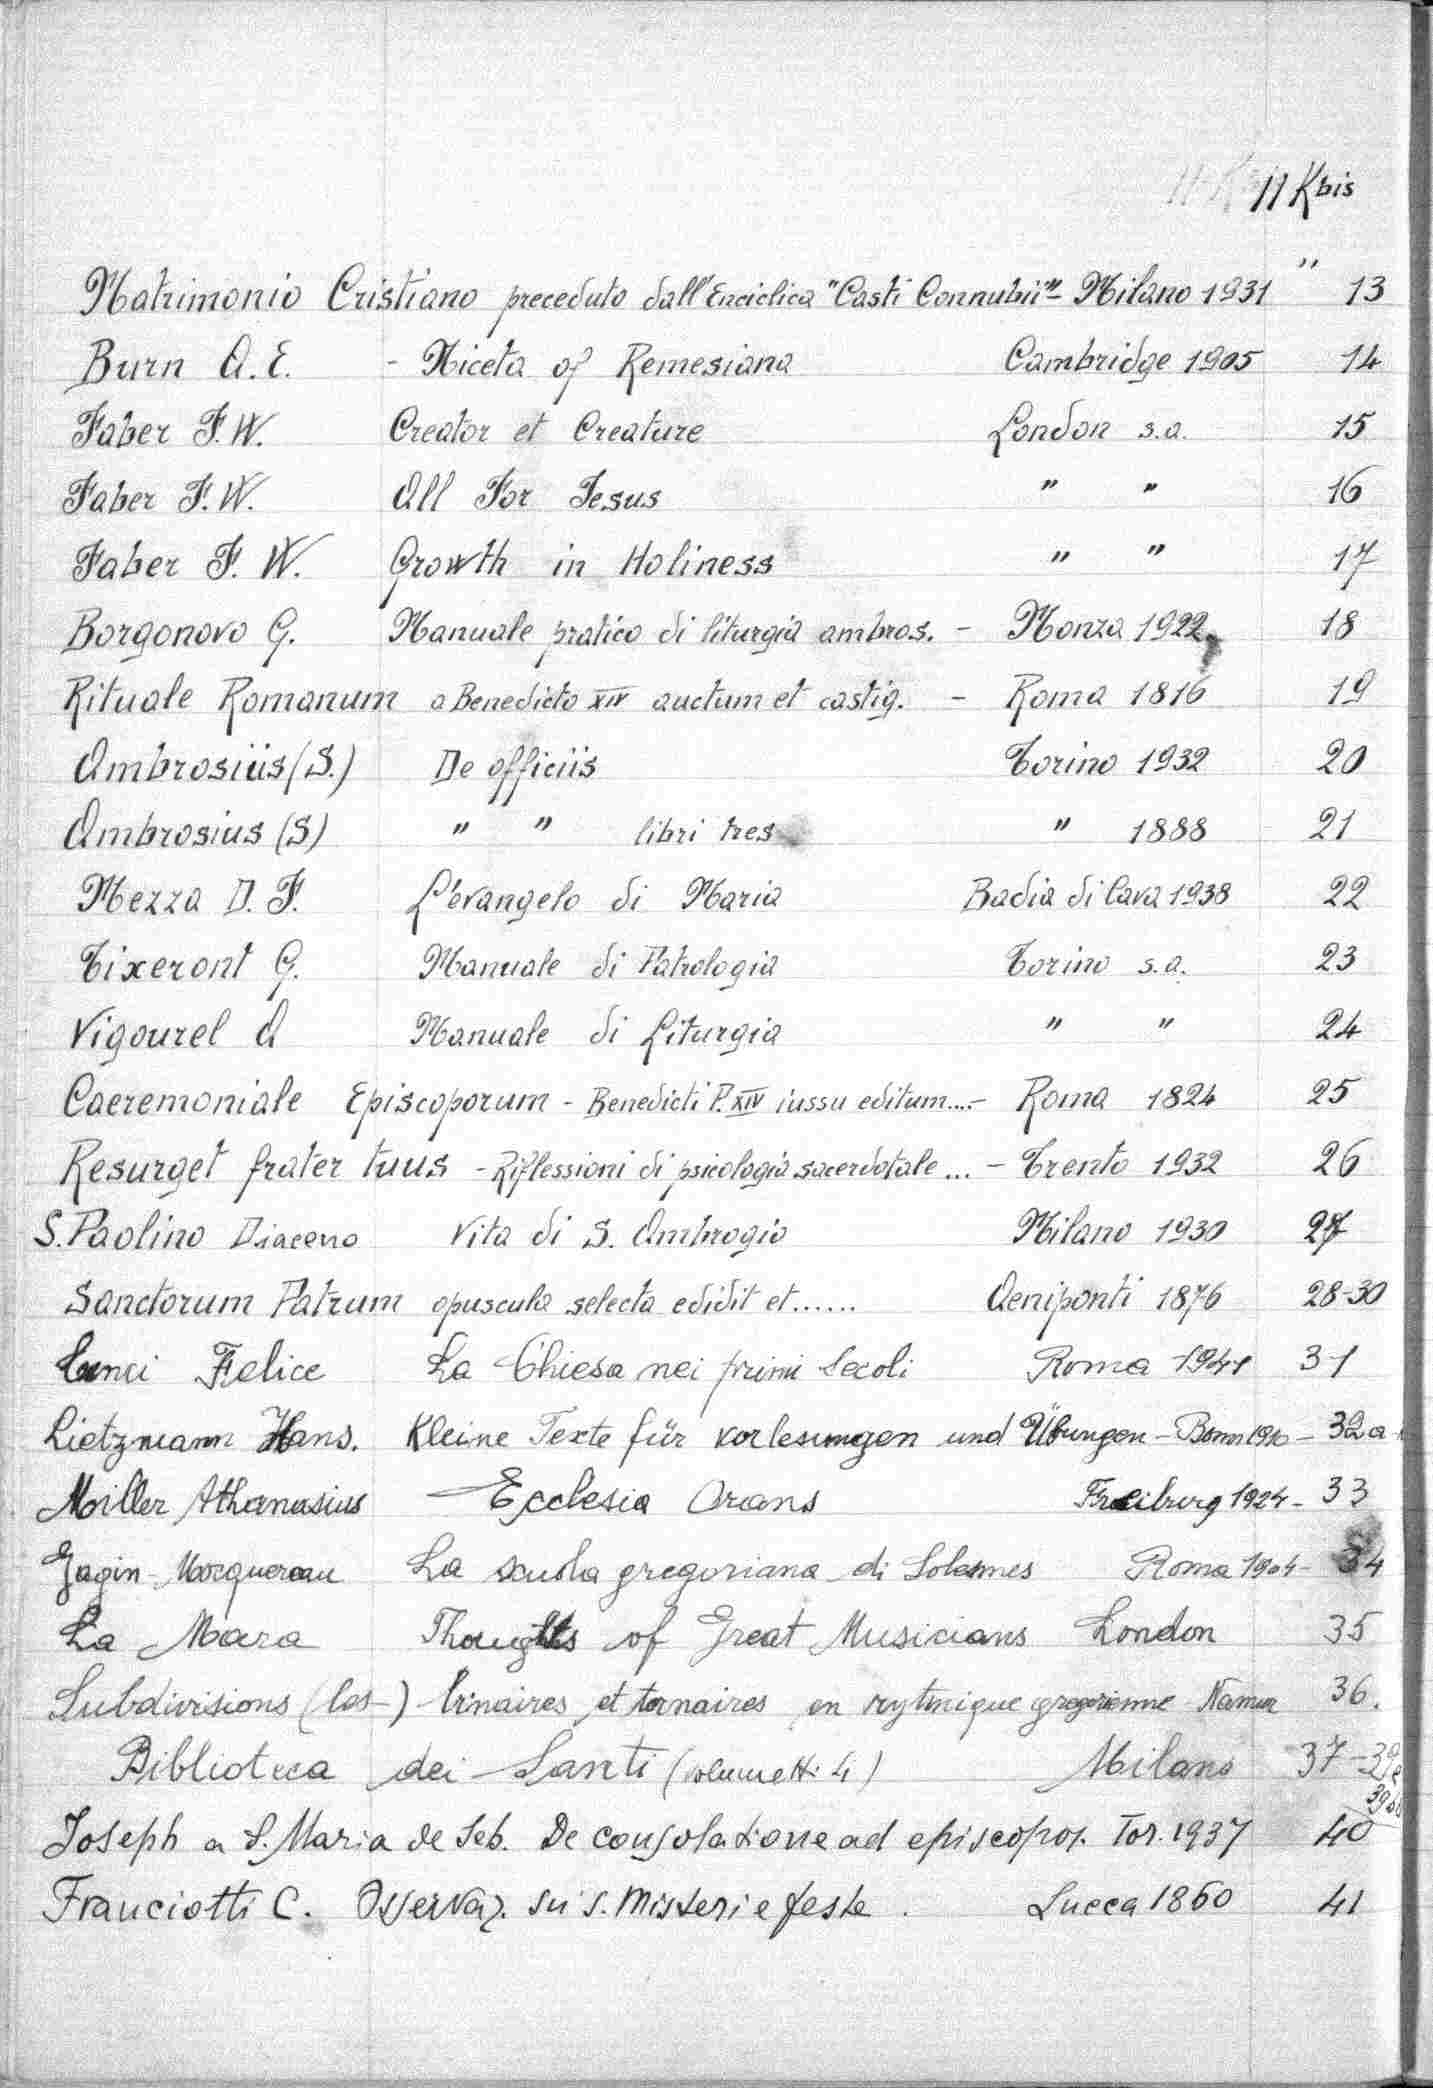 11 Kbis
Matrimonio Cristiano preceduto dall'Enciclica "Casti Connubii" - Milano 1931 " 13
Burn A. E. - Niceta of Remesiana Cambridge 1905 14
Faber F. W. Creator et Creature London s.a. 15
Faber F. W. All For Jesus " " 16
Faber F. W. Growth in Holiness " " 17
Borgonovo G. Manuale pratico di liturgia ambros. - Monza 1922 18
Rituale Romanum a Benedicto XIV auctum et castig. - Roma 1816 19
Ambrosiüs (S.) De officiis Torino 1932 20
Ambrosius (S) " " libri tres " 1888 21
Mezza D. F. L'evangelo di Maria Badia di Cava 1938 22
Tixeront G. Manuale di Patrologia Torino s.a. 23
Vigourel A Manuale di Liturgia " " 24
Caeremoniale Episcoporum - Benedicti P. XIV iussu editum....- Roma 1824 25
Resurget frater tuus - Riflessioni di psicologia sacerdotale ... - Trento 1932 26
S. Paolino Diacono Vita di S. Ambrogio Milano 1930 27
Sanctorum Patrum opuscula selecta edidit et...... Aeniponti 1876 28-30
Felice La Chiesa nei primi secoli Roma 1941 31
Lietzmann Hans. Kleine Texte für vorlesungen und Übungen - Bonn 1910 - 32a
Miller Athanasius Ecclesia Orans Freiburg 1924 - 33
Gagin - Mocquereau La scuola gregoriana di Solesmes Roma 1904 - 34
La Mara Thoughts of Great Musicians London 35
Subdivisions (les-) binaires et ternaires en rytmique gregorienne Namur 36.
Biblioteca dei Santi (volumetti 4) Milano 37-39a
39bis
Joseph a S. Maria de Seb. De consolatione ad episcopos. Tor. 1937 40
Franciotti C. Osservaz. su i S. Misteri e feste. Lucca 1860 41